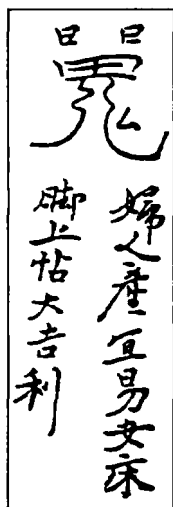 日日
鬼
婦人產宜易安床
脚上帖大吉利